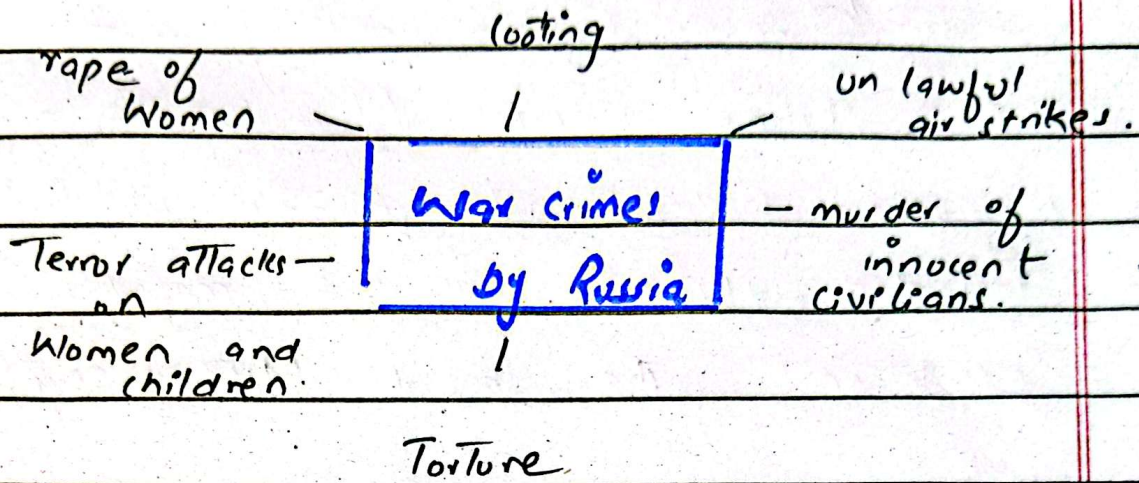 looting
rape of
Women
un lawful
air strikes.
War crimes
by Russia
- murder of
innocent
civilians.
Terror attacks -
on
Women and
children.
Torture